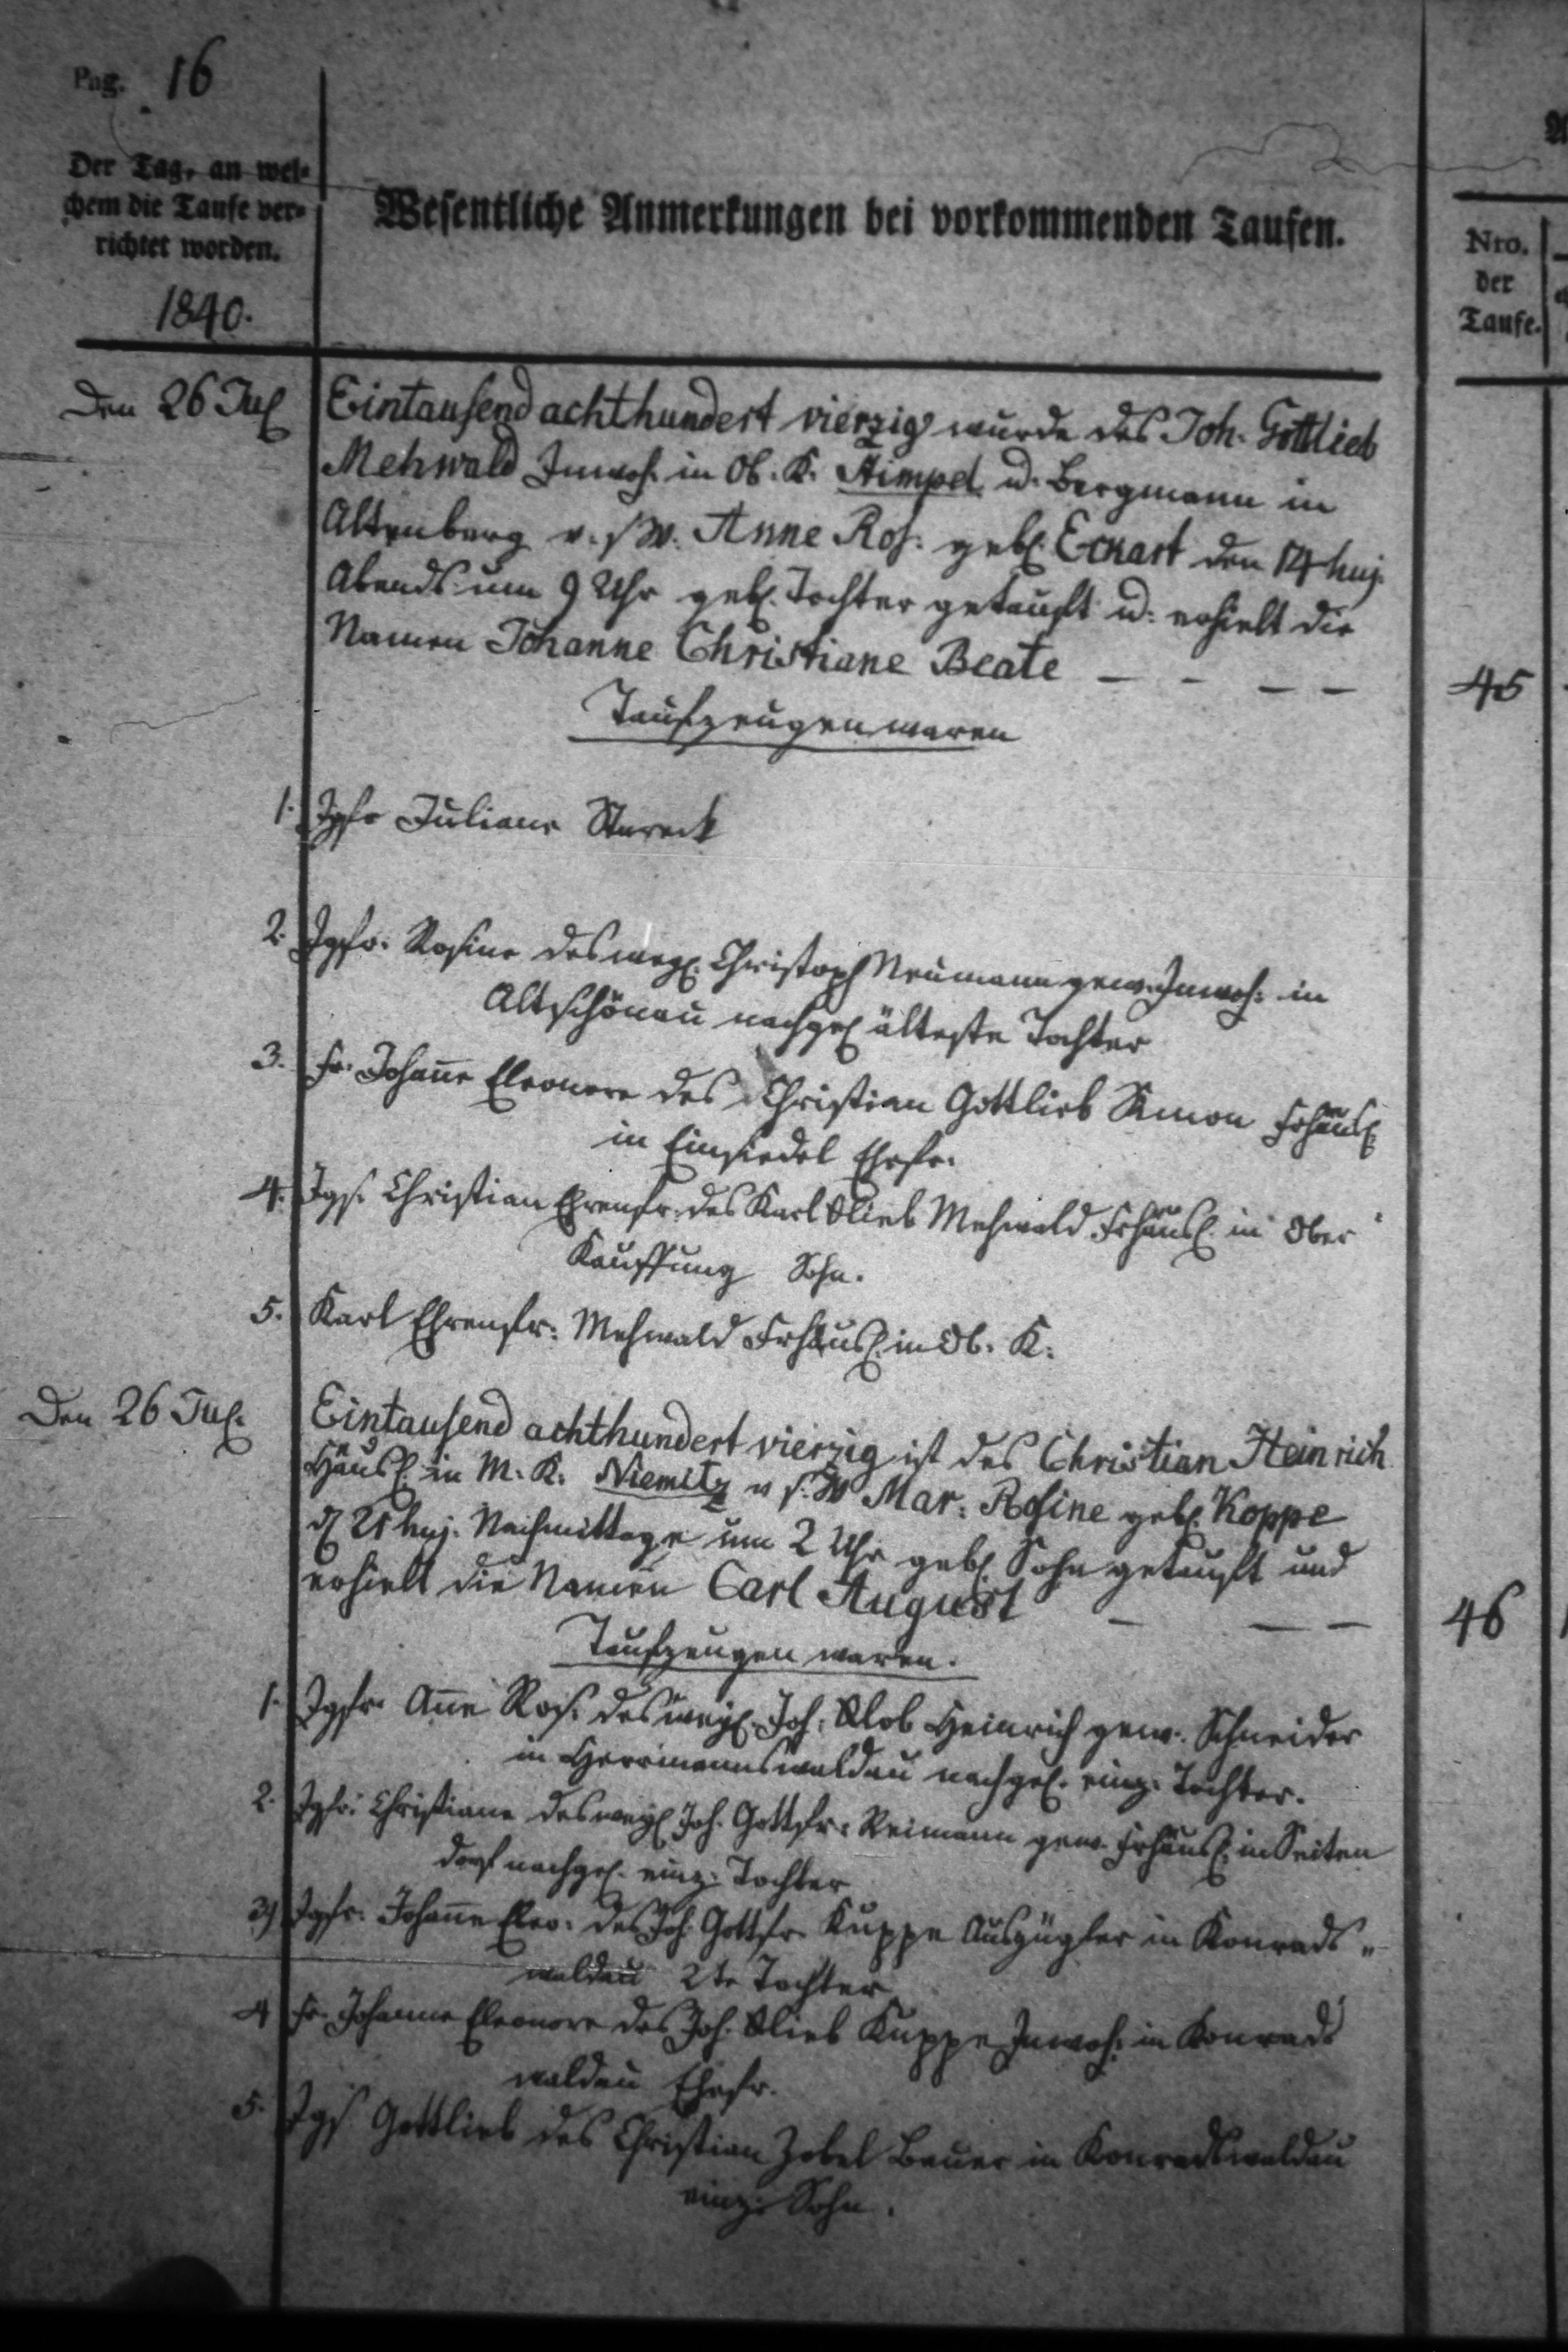 Pag. 16
Der Tag, an wel-
chem die Taufe ver-
richtet worden.
Wesentliche Anmerkungen bei vorkommenden Taufen.
1840.
Nro.
der
Taufe.
Den 26 Jul
Eintausend achthundert vierzig wurde des Joh. Gottlieb
Mehwald Inwoh. in Ob. K. Stimpel u. Bergmann in
Altenberg v. s. W. Anne Ros. geb. Eckart den 14 huj.
Abends um 9 Uhr geb. Tochter getauft u. erhielt die
Namen Johanne Christiane Beate — - — —
45
Taufzeugen waren
1. Jgfr Juliane
2. Jgfr. Rosine des weyl. Christoph Neumann gew. Inwoh. in
Altschönau nachgel älteste Tochter
3. Fr. Johanne Eleonore des Christian Gottlieb Simon Frhäusl.
in Einsiedel Ehefr.
4. Jgs. Christian Ehrenfr. des Karl Glieb Mehwald Frhäusl. in Ober
Kauffung Sohn.
5. Karl Ehrenfr: Mehwald Frhäusl. in Ob. K.
Den 26 Jul.
Eintausend achthundert vierzig ist des Christian Heinrich
Häusl. in M. K. Niemitz v s. W Mar. Rosine geb. Koppe
d 21 huj. Nachmittage um 2 Uhr geb. Sohn getauft und
erhielt die Namen Carl August — — —
46
Taufzeugen waren.
1. Jgfr. Anne Ros. des weyl. Joh. Glob Heinrich gew. Schneider
in Herrmannswaldau nachgel. einz. Tochter.
2. Jgfr. Christiane des weyl Joh. Gottfr. Reimann gew. Frhäusl. in Seiten
dorf nachgel. einz. Tochter
3) Jgfr. Johanne Eleo. des Joh. Gottfr. Kuppe Auszügler in Konrads"
waldau 2te Tochter
4 Fr. Johanne Eleonore des Joh. Glieb Kuppe Inwoh. in Konrads
waldau Ehefr.
5. Jgs. Gottlieb des Christian Zobel Bauer in Konradswaldau
einz. Sohn.